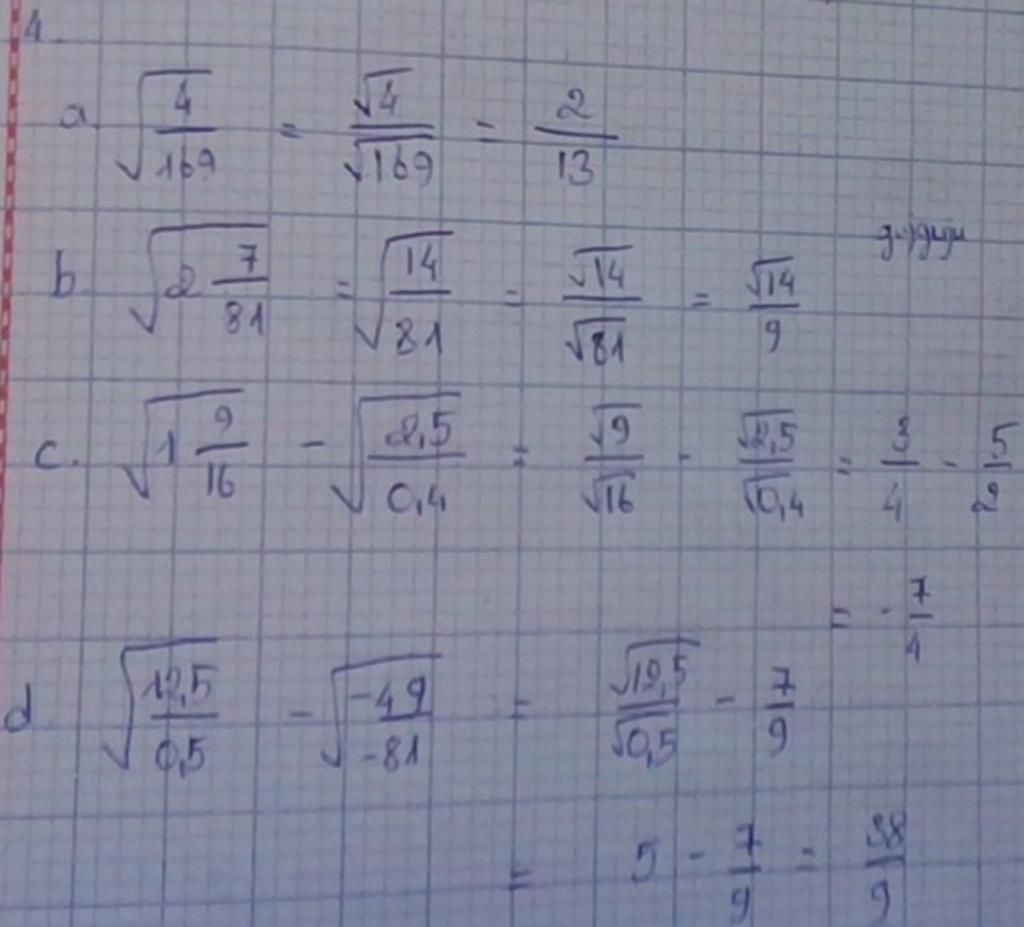 4.
a √(4/169) = √4/√169 = 2/13
b √(2 7/81) = √(14/81) = √14/√81 = √14/9
c. √(1 9/16) - √(2,5/0,4) = √9/√16 - √2,5/√0,4 = 3/4 - 5/2
= - 7/4
d √(12,5/0,5) - √(-49/-81) = √12,5/√0,5 - 7/9
= 5 - 7/9 = 38/9